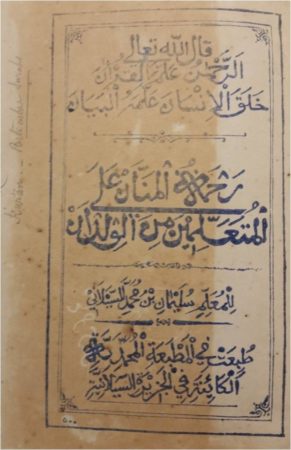 قال الله تعالى
الرَّحْمٰنُ عَلَّمَ الْقُرْآنَ
خَلَقَ الْإِنْسَانَ عَلَّمَهُ الْبَيَانَ
رَحْمَةُ الْمَنَّانِ عَلَى
الْمُتَعَلِّمِيْنَ مِنَ الْوِلْدَانِ
لِلْمُعَلِّمِ سُلَيْمَانَ بْنِ مُحَمَّدٍ السَّيْلَانِيّ
طُبِعَتْ فِي الْمَطْبَعَةِ الْمُحَمَّدِيَّةِ
الْكَائِنَةِ فِي الْجَزِيْرَةِ السَّيْلَانِيَّةِ